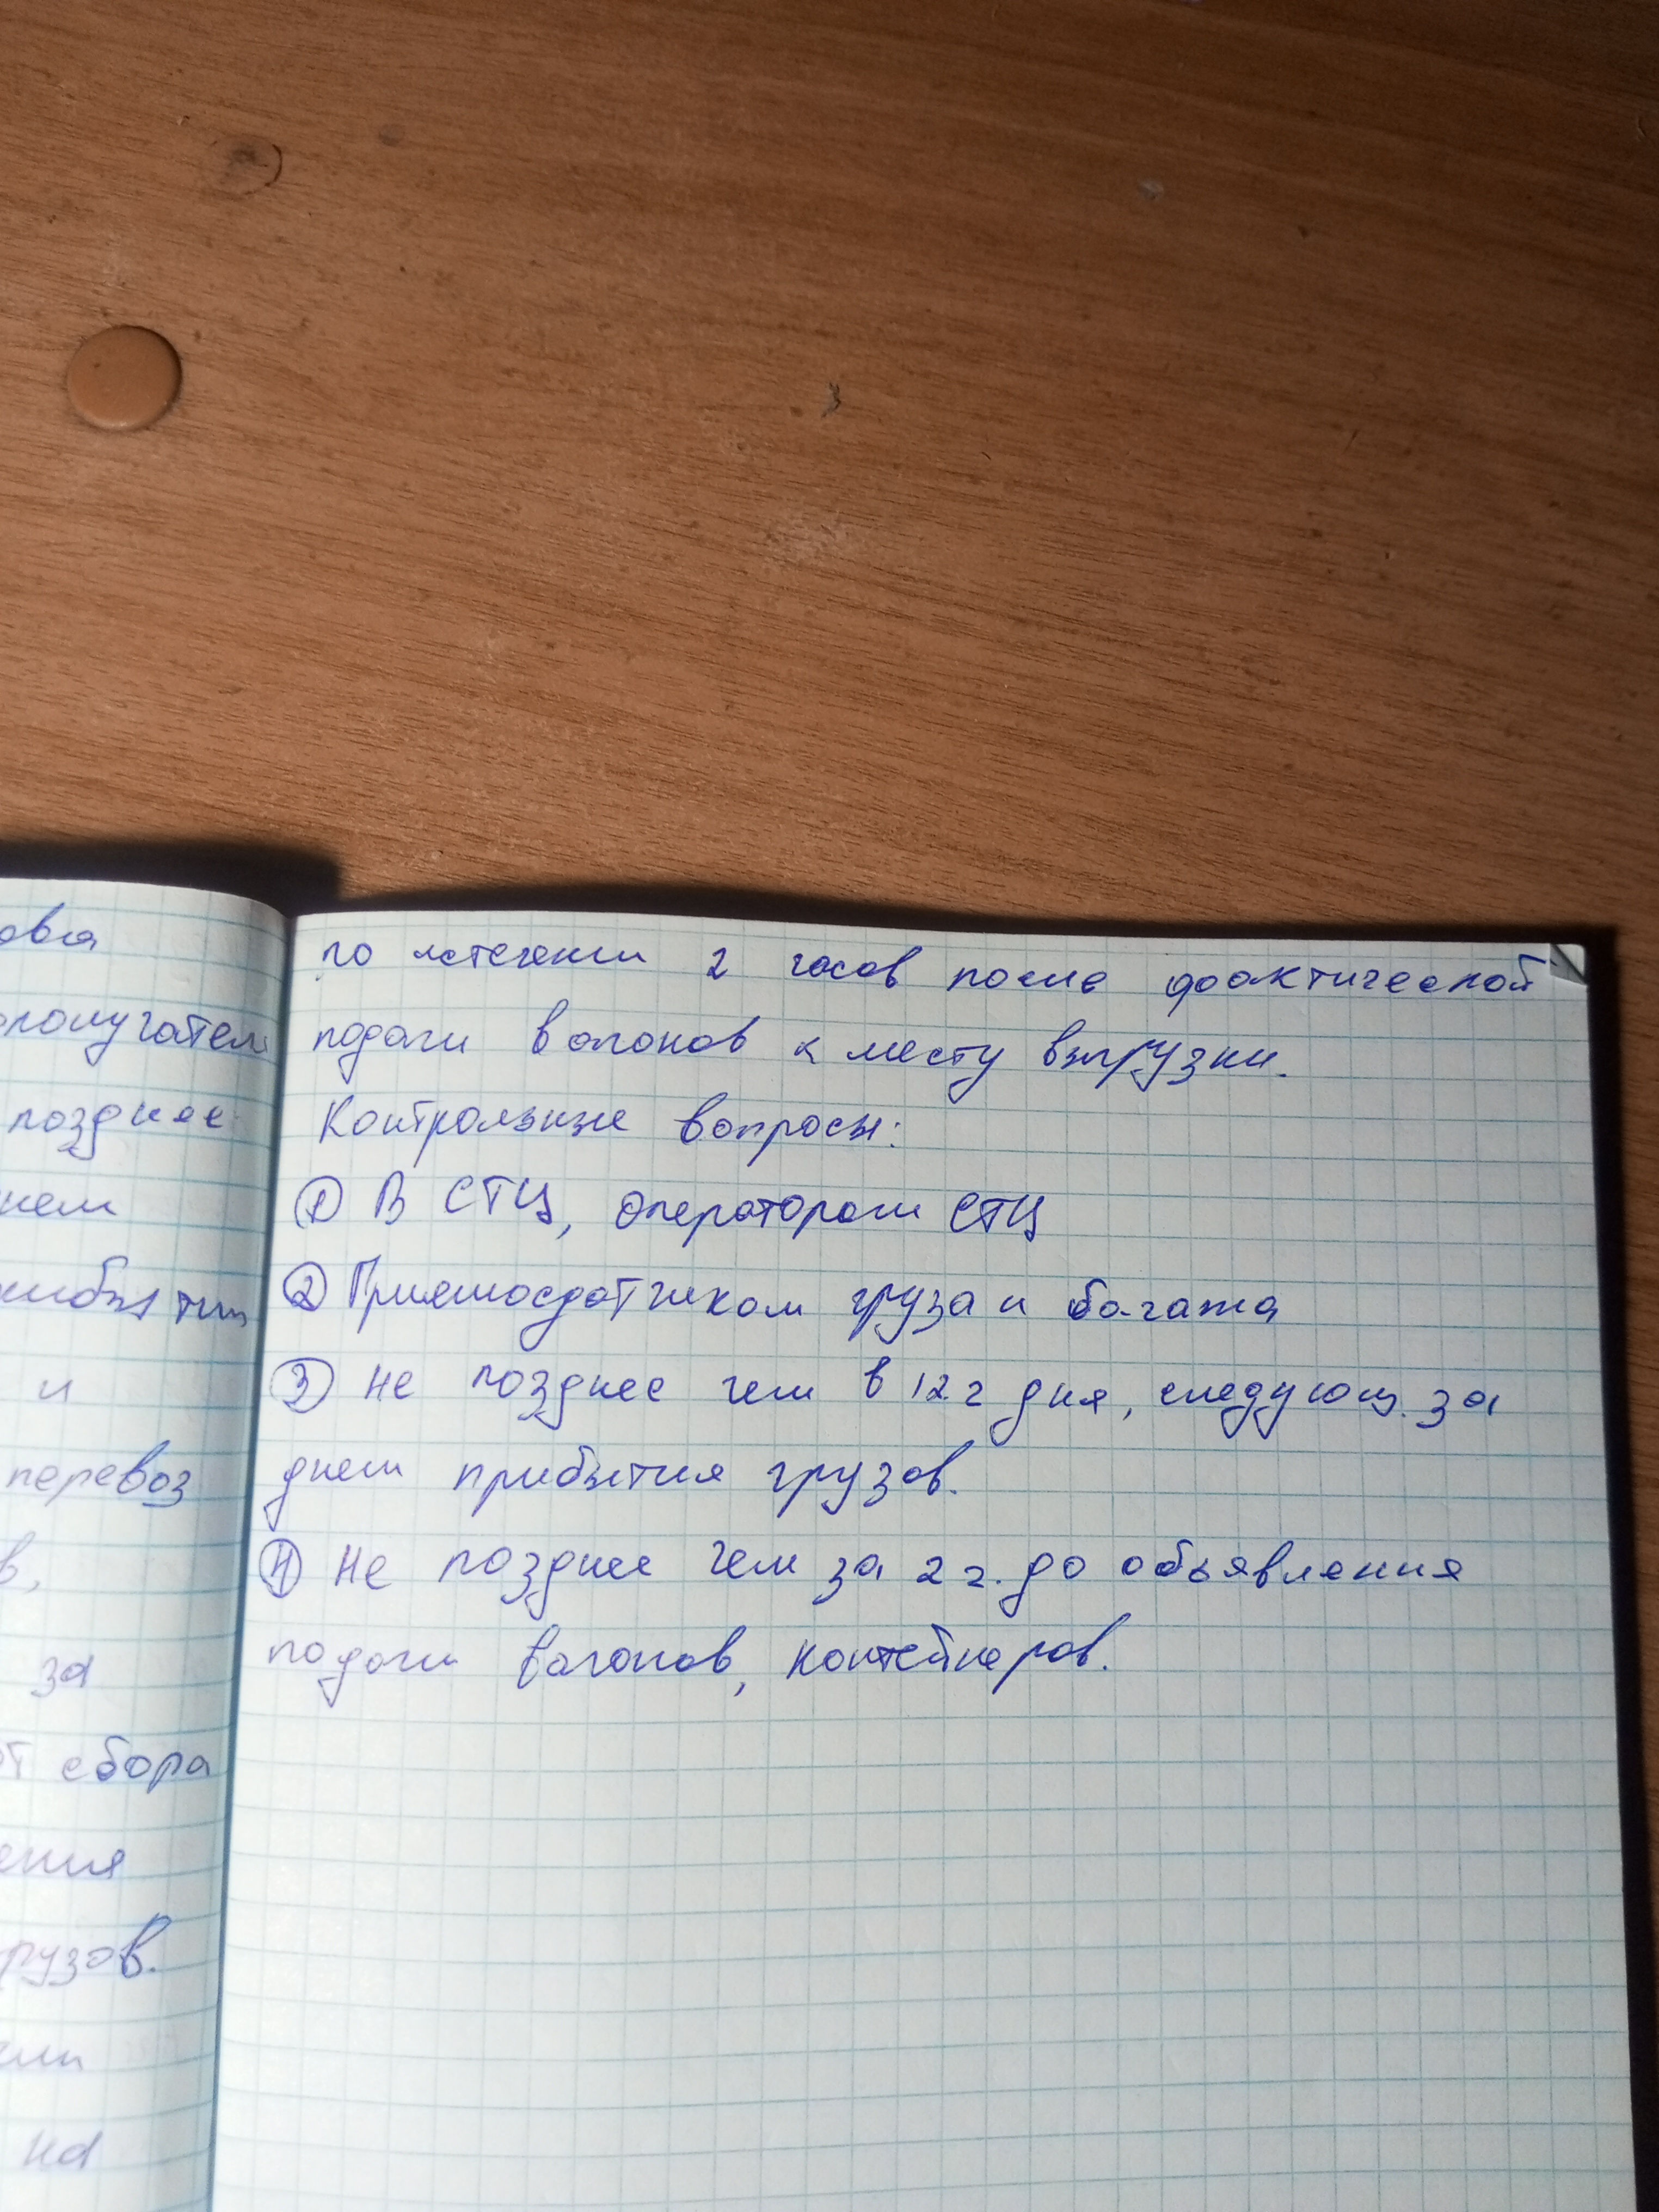 ова
получател
позднее:
нем
прибытии
и
перевоз
в,
за
от сбора
ения
рузов.
ии
на
по истечении 2 часов после фактической
подачи вагонов к месту выгрузки.
Контрольные вопросы:
① В СТЦ, оператором СТЦ
② Приемосдатчиком груза и багажа
③ Не позднее чем в 12 ч дня, следующ. за
днем прибытия грузов.
④ Не позднее чем за 2 ч. до объявления
подачи вагонов, контейнеров.